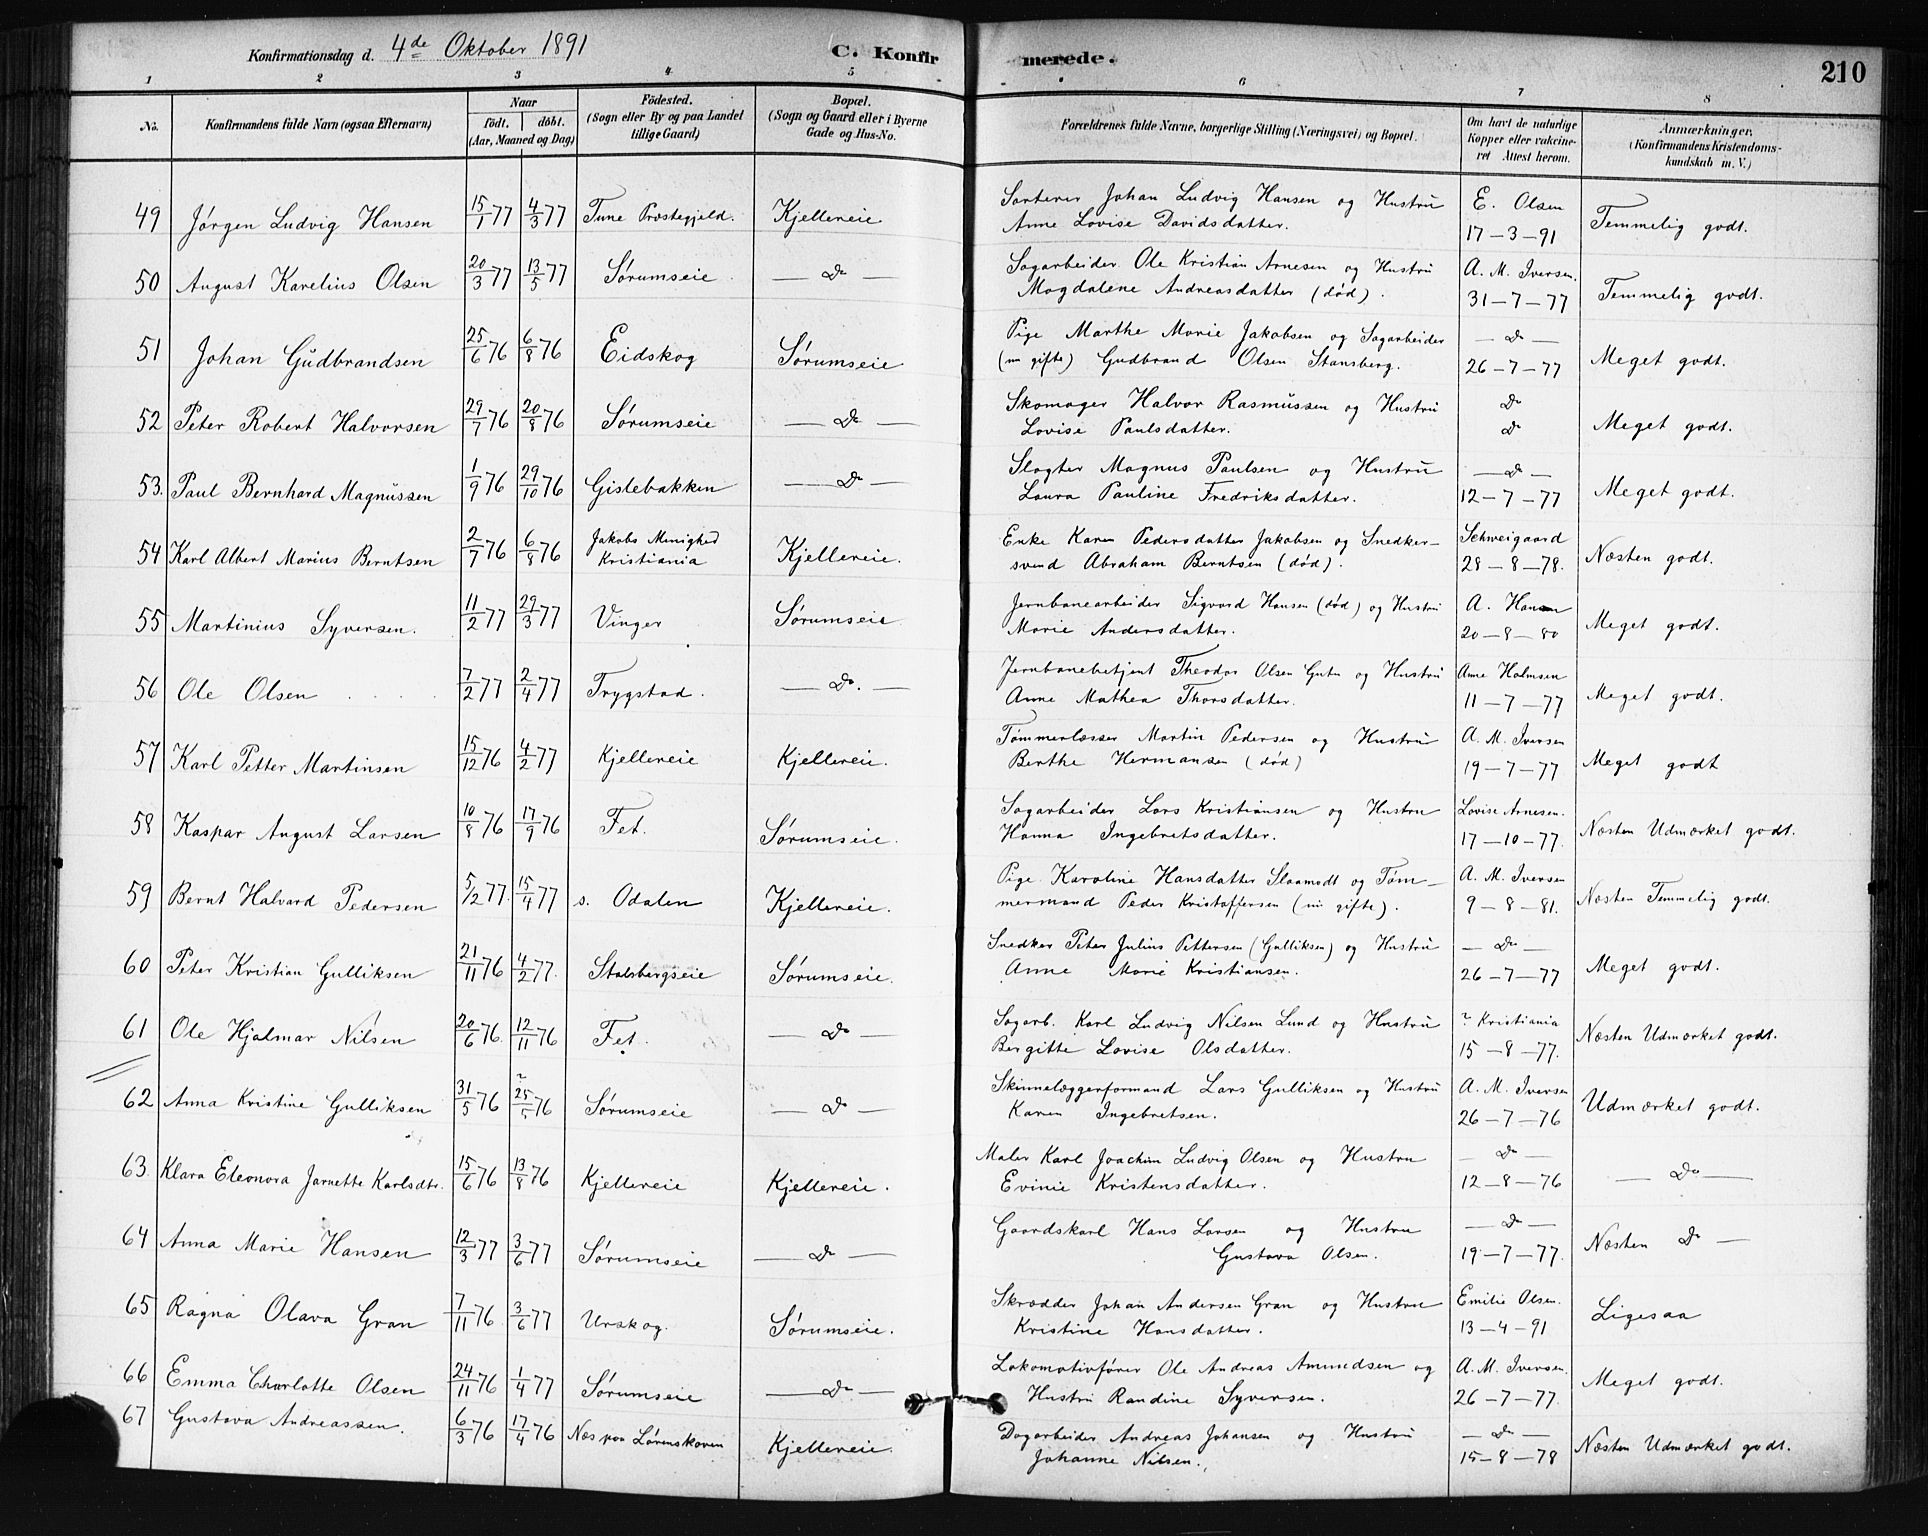 Konfirmationsdag d. 4de Oktober 1891
C. Konfirmerede.
210
1 2 3 4 5 6 7 8
No.
Konfirmandens fulde Navn (ogsaa Efternavn)
Naar
født. døbt.
(Aar, Maaned og Dag)
Födested.
(Sogn eller By og paa Landet
tillige Gaard)
Bopæl.
(Sogn og Gaard eller i Byerne
Gade og Hus-No.
Forældrenes fulde Navne, borgerlige Stilling (Næringsvei) og Bopæl.
Om havt de naturlige
Kopper eller vakcine-
ret Attest herom.
Anmærkninger.
(Konfirmandens Kristendoms-
kundskab m. V.)
49 Jørgen Ludvig Hansen 15/1 77 4/3 77 Tune Præstegjeld. Kjellereie Sorterer Johan Ludvig Hansen og Hustru E. Olsen Temmelig godt.
Anne Lovise Davidsdatter. 17-3-91
50 August Karelius Olsen 20/3 77 13/5 77 Sørumseie — Do — Sagarbeider Ole Kristian Arnesen og Hustru A. M. Iversen. Temmelig godt.
Magdalene Andreasdatter (død). 31-7-77
51 Johan Gudbrandsen 25/6 76 6/8 76 Eidskog Sørumseie Pige Marthe Marie Jakobsen og Sagarbeider — Do — Meget godt.
(nu gifte) Gudbrand Olsen Stansberg. 26-7-77
52 Peter Robert Halvorsen 29/7 76 20/8 76 Sørumseie — Do — Skomager Halvor Rasmussen og Hustru Do Meget godt.
Lovise Paulsdatter. Do
53. Paul Bernhard Magnussen 1/9 76 29/10 76 Gistebakken — Do — Slagter Magnus Paulsen og Hustru — Do — Meget godt.
Laura Pauline Fredriksdatter. 12-7-77
54 Karl Albert Marius Berntsen 2/7 76 6/8 76 Jakobs Menighed Kristiania Kjellereie. Enke Karen Pedersdatter Jakobsen og Snedker- Schweigaard Næsten godt.
svend Abraham Berntsen (død). 28-8-78.
55 Martinius Syversen. 11/2 77 29/3 77 Vinger Sørumseie Jernbanearbeider Sigvard Hansen (død) og Hustru A. Hansen Meget godt.
Marie Andersdatter. 20-8-80
56 Ole Olsen 7/2 77 2/4 77 Trygstad. — Do. — Jernbanebetjent Theodor Olsen Gutu og Hustru Anne Holmsen Meget godt.
Anne Mathea Thorsdatter. 11-7-77
57 Karl Petter Martinsen 15/12 76 4/2 77 Kjellereie Kjellereie. Tømmerlæsser Martin Pedersen og Hustru A. M. Iversen Meget godt
Berthe Hermansen (død) 19-7-77
58 Kaspar August Larsen 10/8 76 17/9 76 Fet. Sørumseie. Sagarbeider Lars Kristiansen og Hustru Lovise Arnesen. Næsten Udmærket godt.
Hanna Ingebretsdatter. 17-10-77.
59 Bernt Halvard Pedersen 5/12 77. 15/4 77 s. Odalen Kjellereie. Pige Karoline Hansdatter Slaamodt og Tøm- A. M. Iversen Næsten Temmelig godt.
mermand Peder Kristoffersen (nu gifte). 9-8-81.
60 Peter Kristian Gulliksen 21/11 76 4/2 77. Stalsbergseie Sørumseie. Snedker Peter Julius Pettersen (Gulliksen) og Hustru — Do — Meget godt.
Anne Marie Kristiansen. 26-7-77
61 Ole Hjalmar Nilsen 20/6 76. 12/11 76 Fet. — Do — Sagarb. Karl Ludvig Nilsen Lund og Hustru ? Kristiania Næsten Udmærket godt.
Bergitte Lovise Olsdatter. 15-8-77.
62 Anna Kristine Gulliksen 31/5 76 ? 25/5 76 Sørumseie — Do — Skinnelæggerformand Lars Gulliksen og Hustru A. M. Iversen Udmærket godt.
Karen Ingebretsen. 26-7-76
63. Klara Eleonora Jarnette Karlsdtr. 15/6 76 13/8 76 Kjellereie Kjellereie. Maler Karl Joachim Ludvig Olsen og Hustru — Do — — Do —
Evinie Kristensdatter. 12-8-76
64 Anna Marie Hansen 12/3 77 3/6 77 Sørumseie — Do — Gaardskarl Hans Larsen og Hustru — Do — Næsten Do —
Gustava Olsen. 19-7-77.
65 Ragna Olava Gran 7/11 76. 3/6 77 Urskog. Sørumseie. Skrædder Johan Andersen Gran og Hustru Emilie Olsen. Ligesaa
Kristine Hansdatter. 13-4-91
66 Emma Charlotte Olsen 24/11 76 1/4 77 Sørumseie — Do — Lokomotivfører Ole Andreas Amundsen og A. M. Iversen. Meget godt.
Hustru Randine Syversen. 26-7-77.
67 Gustava Andreassen. 6/3 76 17/4 76 Næs paa Lørenskoven Kjellereie. Dagarbeider Andreas Johansen og Hustru — Do — Næsten Udmærket godt.
Johanne Nilsen. 15-8-78